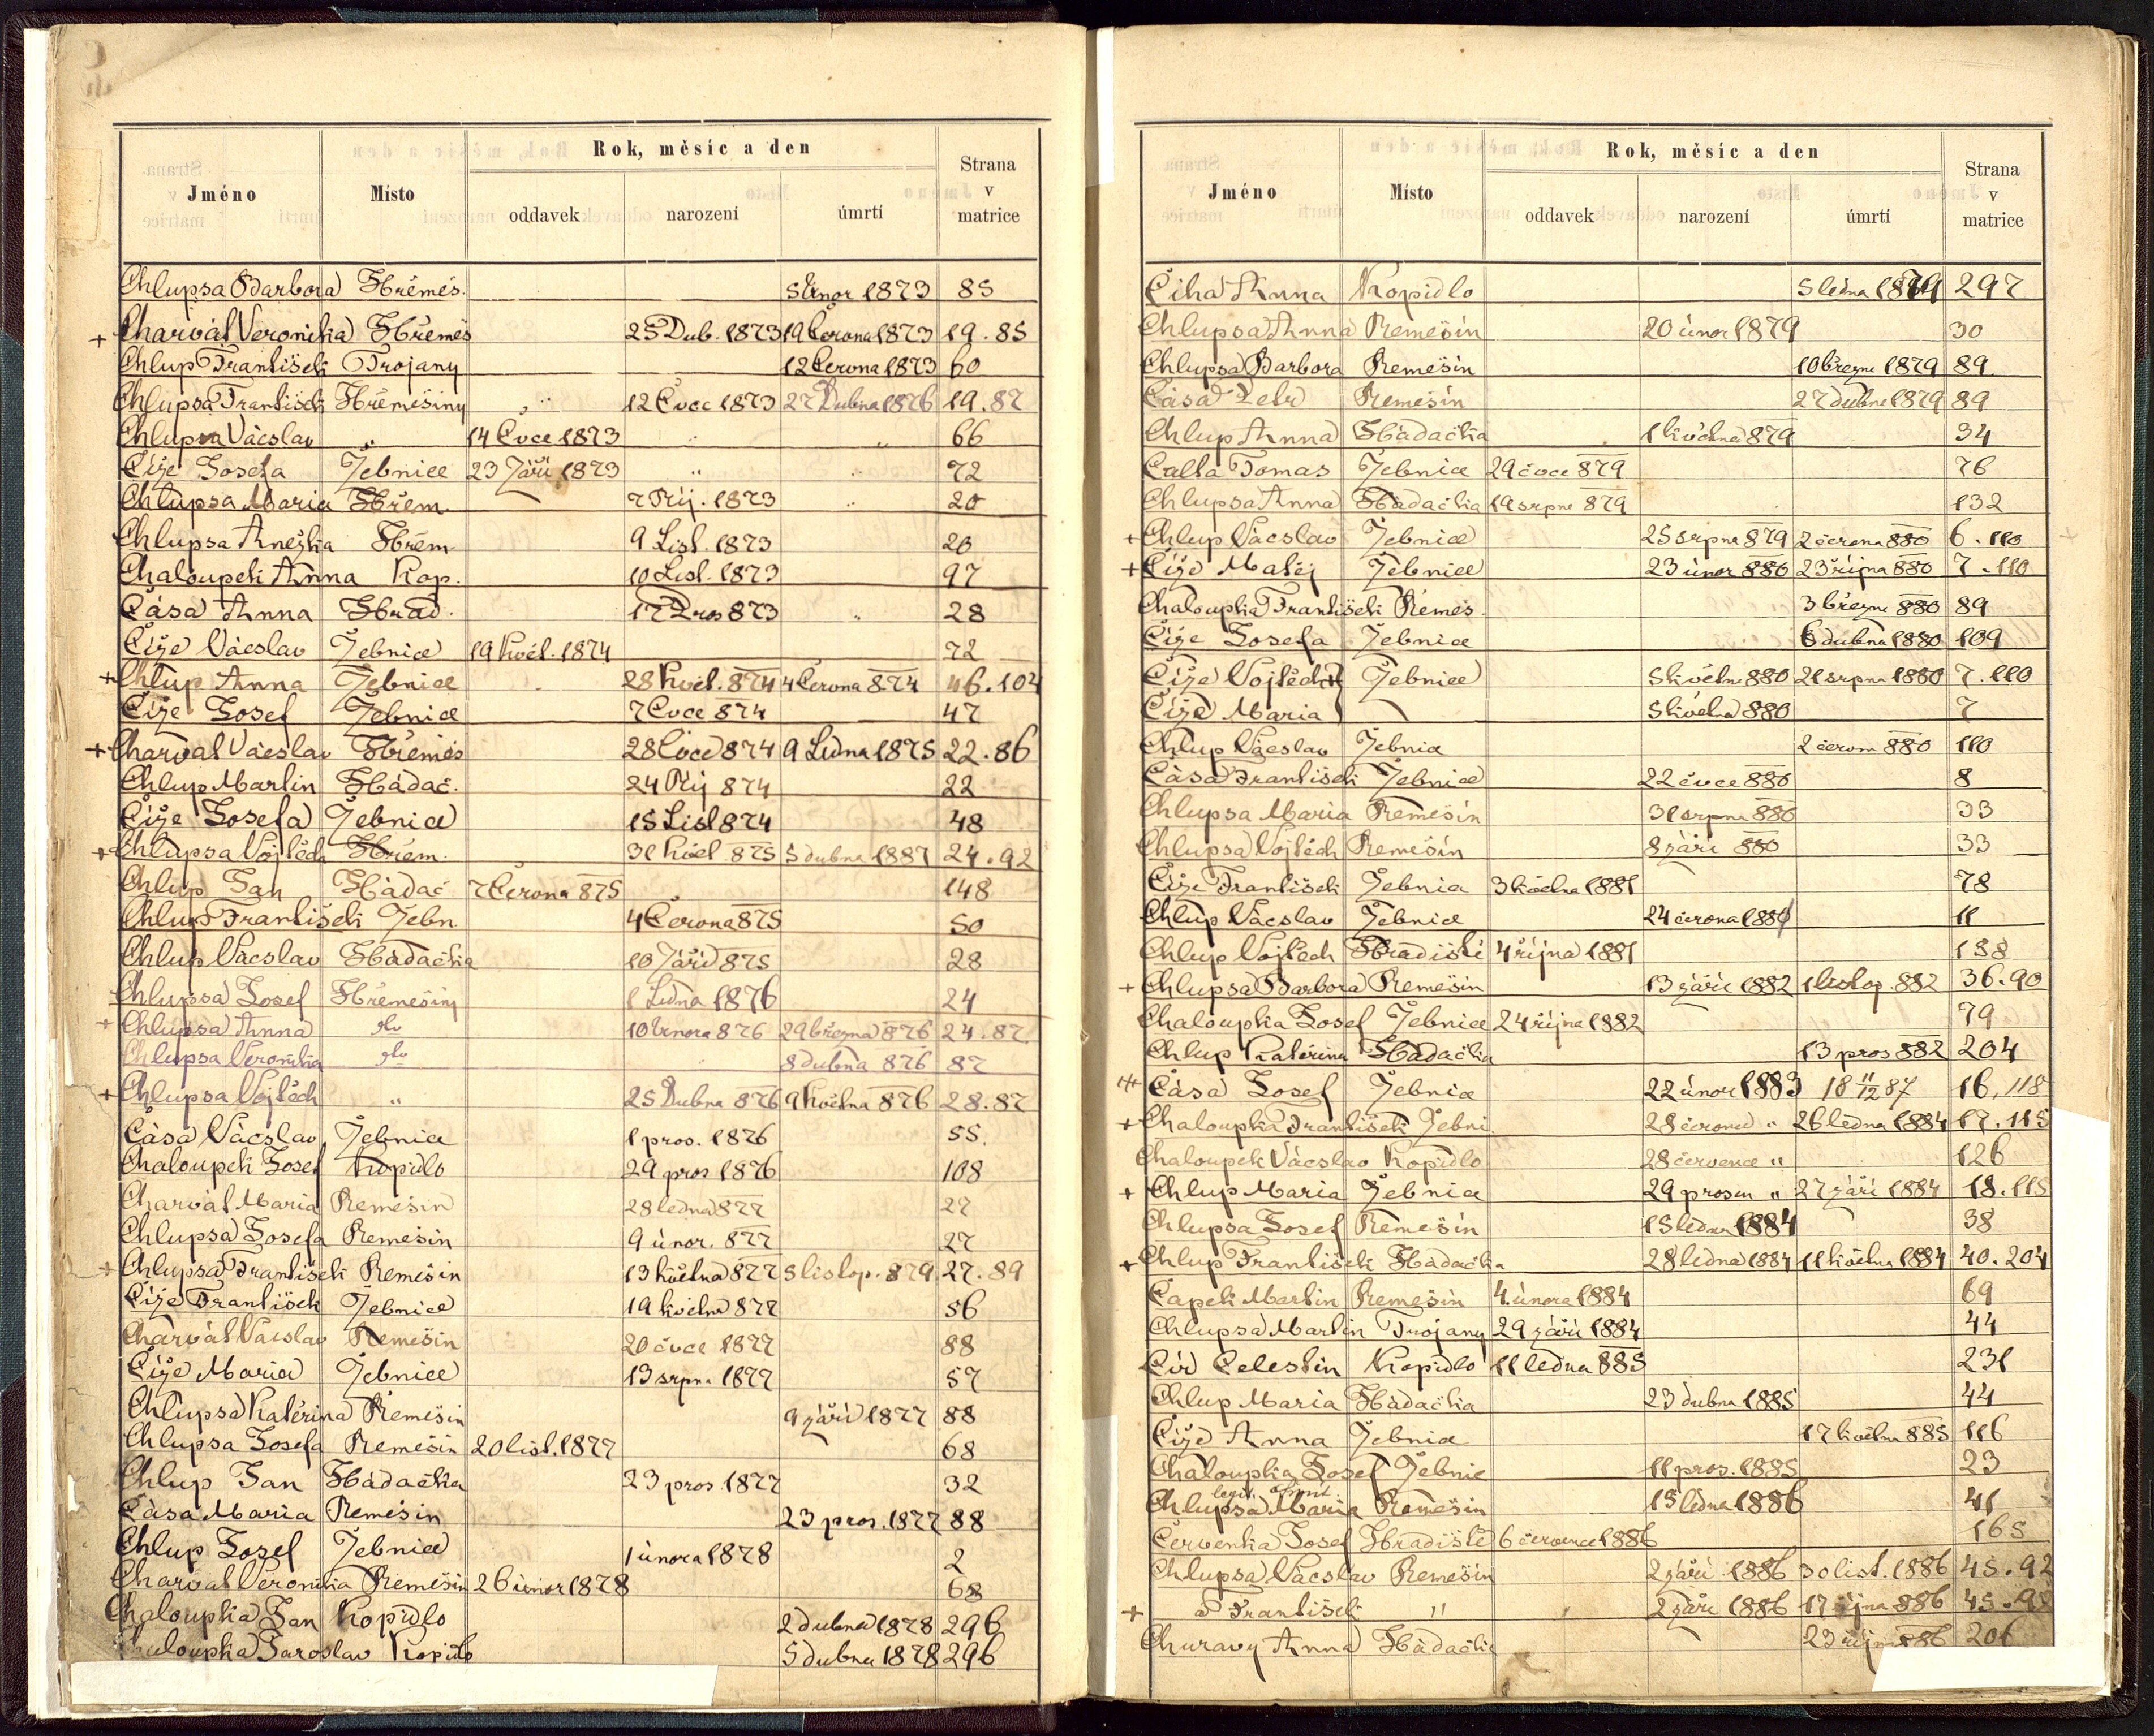 Rok, měsíc a den
Jméno Místo oddavek narození úmrtí Strana v matrice
Chlupsa Barbora Hřeměs. 5 únor 1873 85
+ Charvál Veronika Hřeměs 25 Dub. 1873 19 Června 1873 19.85
Chlup František Trojany 12 Června 1873 60
Chlupsa František Hřemešiny „ 12 Čvce 1873 27 Dubna 1876 19.87
Chlupsa Vácslav „ 14 Čvce 1873 „ „ 66
Číže Josefa Žebnice 23 Září 1873 „ „ 72
Chlupsa Maria Hřem. 7 Říj. 1873 „ 20
Chlupsa Anežka Hřem. 9 List. 1873 20
Chaloupek Anna Kop. 10 List. 1873 97
Čása Anna Hrad. 17 Pros 873 „ 28
Číže Vácslav Žebnice 19 Květ. 1874 72
+ Chlup Anna Žebnice 28 Květ. 874 4 Června 874 46.104
Číže Josef Žebnice 7 Čvce 874 47
+ Charvál Vácslav Hřeměs 28 Čvce 874 9 Ledna 1875 22.86
Chlup Martin Hádač. 24 Říj 874 22
Číže Josefa Žebnice 15 List 874 48
+ Chlupsa Vojtěch Hřem. 31 Květ. 875 5 dubna 1887 24.92
Chlup Jan Hádač 7 Června 875 148
Chlup František Žebn. 4 Června 875 50
Chlup Vácslav Hádačka 10 Září 875 28
Chlupsa Josef Hřemešiny 1 Ledna 1876 24
+ Chlupsa Anna dto 10 Února 876 29 března 876 24.87
Chlupsa Veronika dto 8 dubna 876 87
+ Chlupsa Vojtěch „ 25 Dubna 876 9 Května 876 28.87
Čása Vácslav Žebnice 1 pros. 1876 55.
Chaloupek Josef Kopidlo 29 pros 1876 108
Charvál Maria Řemešín 28 ledna 877 27
Chlupsa Josefa Řemešín 9 únor. 877 27
+ Chlupsa František Řemešín 13 května 877 5 listop. 879 27.89
Číže František Žebnice 19 května 877 56
Charvál Vácslav Řemešín 20 čvce 1877 88
Číže Maria Žebnice 13 srpna 1877 57
Chlupsa Kateřina Řemešín 9 září 1877 88
Chlupsa Josefa Řemešín 20 list. 1877 68
Chlup Jan Hádačka 23 pros 1877 32
Čása Maria Řemešín 23 pros. 1877 88
Chlup Josef Žebnice 1 února 1878 2
Charvál Veronika Řemešín 26 únor 1878 68
Chaloupka Jan Kopidlo 2 dubna 1878 296
Chaloupka Jaroslav Kopidlo 5 dubna 1878 296
Rok, měsíc a den
Jméno Místo oddavek narození úmrtí Strana v matrice
Číha Anna Kopidlo 5 ledna 1879 297
Chlupsa Anna Řemešín 20 únor 1879 30
Chlupsa Barbora Řemešín 10 března 1879 89
Čása Petr Řemešín 27 dubna 1879 89
Chlup Anna Hádačka 1 května 879 34
Calta Tomas Žebnice 29 čvce 879 76
Chlupsa Anna Hádačka 19 srpna 879 132
+ Chlup Vácslav Žebnice 25 srpna 879 2 června 880 6.110
+ Číže Matěj Žebnice 23 únor 880 23 října 880 7.110
Chaloupka František Řemes. 3 března 880 89
Číže Josefa Žebnice 6 dubna 1880 109
Číže Vojtěch Žebnice 5 května 880 21 srpna 1880 7.110
Číže Maria 5 května 880 7
Chlup Vácslav Žebnice 2 června 880 110
Čása František Žebnice 22 čvce 880 8
Chlupsa Maria Řemešín 31 srpna 880 33
Chlupsa Vojtěch Řemešín 8 září 880 33
Číže František Žebnice 3 května 1881 78
Chlup Vácslav Žebnice 24 června 1881 11
Chlup Vojtěch Hradiště 4 října 1881 138
+ Chlupsa Barbora Řemešín 13 září 1882 1 listop. 882 36.90
Chaloupka Josef Žebnice 24 října 1882 79
Chlup Kateřina Hádačka 13 pros 882 204
Čása Josef Žebnice 22 únor 1883 18 11/12 87 16.118
+ Chaloupka František Žebni. 28 června „ 26 ledna 1884 17.115
Chaloupek Vácslav Kopidlo 28 července „ 126
+ Chlup Maria Žebnice 29 prosin „ 27 září 1884 18.115
Chlupsa Josef Řemešín 15 ledna 1884 38
+ Chlup František Hádačka 28 ledna 1884 11 května 1884 40.204
Čapek Martin Řemešín 4. února 1884 69
Chlupsa Martin Trojany 29 září 1884 44
Cír Celestin Kopidlo 11 ledna 885 231
Chlup Maria Hádačka 23 dubna 1885 44
Číže Anna Žebnice 17 května 885 116
Chaloupka Josef Žebnic 11 pros. 1885 23
Chlupsa Maria Řemešín 15 ledna 1886 41
Červenka Josef Hradiště 6 července 1886 165
Chlupsa Vácslav Řemešín 2 září 1886 30 list. 1886 45.92
+ a František „ 2 září 1886 17 října 886 45.92
Churavý Anna Hádačka 23 října 886 206